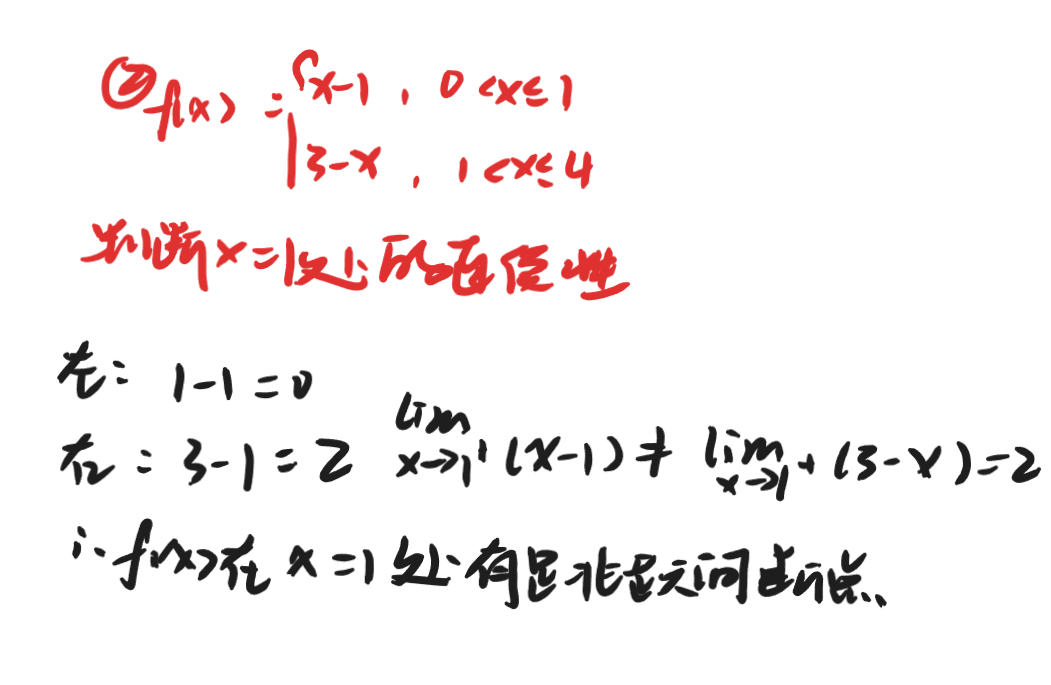 ② f(x) = { x-1 , 0<x≤1
3-x , 1<x≤4
判断x=1处的连续性
左: 1-1=0
右: 3-1=2 lim x→1⁻ (x-1) ≠ lim x→1⁺ (3-x)=2
∴ f(x)在 x=1处 间断点、